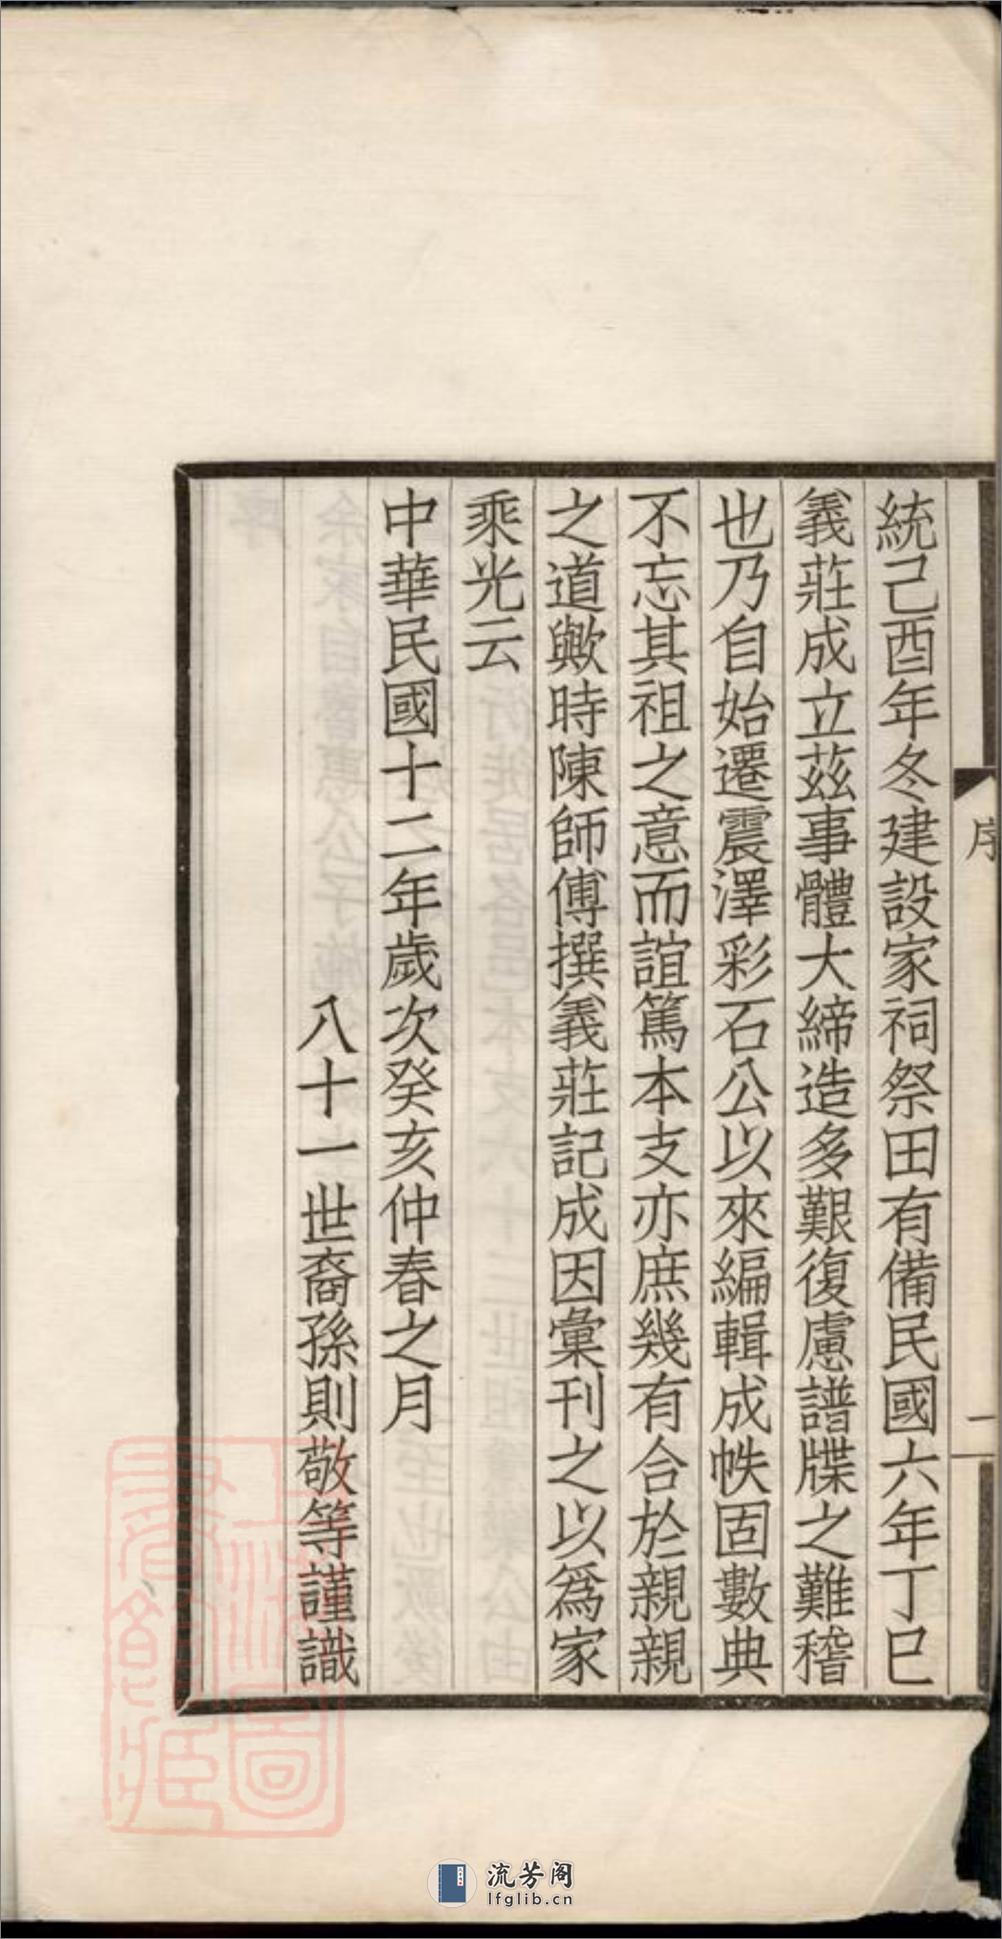 序
一
統己酉年冬建設家祠祭田有備民國六年丁巳
義莊成立茲事體大締造多艱復慮譜牒之難稽
也乃自始遷震澤彩石公以來編輯成帙固數典
不忘其祖之意而誼篤本支亦庶幾有合於親親
之道歟時陳師傅撰義莊記成因彙刊之以爲家
乘光云
中華民國十二年歲次癸亥仲春之月
八十一世裔孫則敬等謹識
流芳阁
lfglib.cn